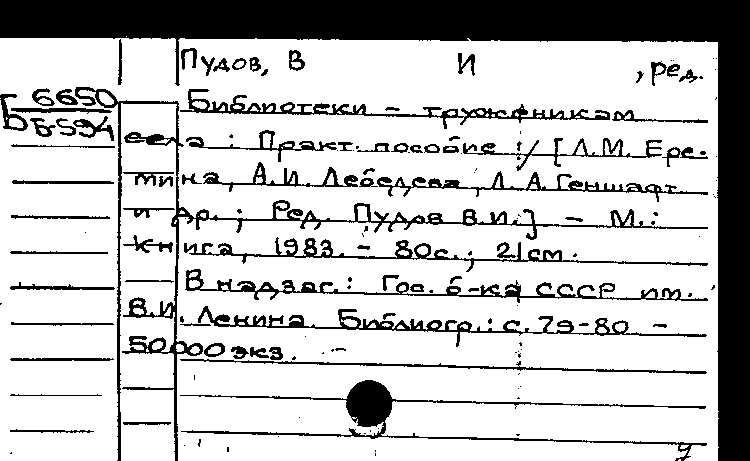 Пудов, В И , ред.
6650
Б5-594
Библиотеки - труженикам
села : Практ. пособие / [Л.М. Ере-
мина, А.И. Лебедева, Л.А. Геншафт
и др. ; Ред. Пудов В.И.] - М.:
Книга, 1983. - 80с.; 21см.
В надзаг.: Гос. б-ка СССР им.
В.И. Ленина. Библиогр.: с. 79-80 -
50000 экз. -